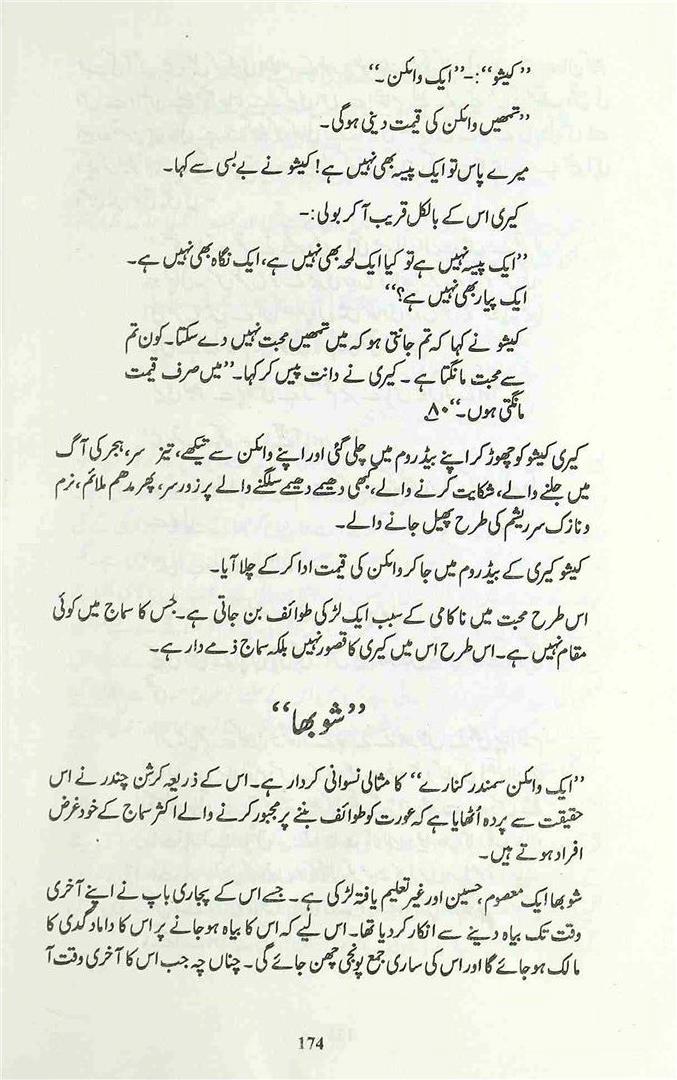 ”کیشو“:۔ ”ایک وائلن۔“
”تمھیں وائلن کی قیمت دینی ہوگی۔
میرے پاس تو ایک پیسہ بھی نہیں ہے! کیشو نے بے بسی سے کہا۔
کیری اس کے بالکل قریب آکر بولی:۔
”ایک پیسہ نہیں ہے تو کیا ایک لمحہ بھی نہیں ہے، ایک نگاہ بھی نہیں ہے۔
ایک پیار بھی نہیں ہے؟“
کیشو نے کہا کہ تم جانتی ہو کہ میں تمھیں محبت نہیں دے سکتا۔ کون تم
سے محبت مانگتا ہے۔ کیری نے دانت پیس کر کہا۔ ”میں صرف قیمت
مانگتی ہوں۔“ ۸۰
کیری کیشو کو چھوڑ کر اپنے بیڈروم میں چلی گئی اور اپنے وائلن سے تیکھے، تیز سر، ہجر کی آگ
میں جلنے والے، شکایت کرنے والے، کبھی دھیمے دھیمے سلگنے والے پر زور سر، پھر مدھم ملائم، نرم
و نازک سر ریشم کی طرح پھیل جانے والے۔
کیشو کیری کے بیڈروم میں جا کر وائلن کی قیمت ادا کر کے چلا آیا۔
اس طرح محبت میں ناکامی کے سبب ایک لڑکی طوائف بن جاتی ہے۔ جس کا سماج میں کوئی
مقام نہیں ہے۔ اس طرح اس میں کیری کا قصور نہیں بلکہ سماج ذمے دار ہے۔
”شوبھا“
”ایک وائلن سمندر کنارے“ کا مثالی نسوانی کردار ہے۔ اس کے ذریعہ کرشن چندر نے اس
حقیقت سے پردہ اُٹھایا ہے کہ عورت کو طوائف بننے پر مجبور کرنے والے اکثر سماج کے خود غرض
افراد ہوتے ہیں۔
شوبھا ایک معصوم، حسین اور غیر تعلیم یافتہ لڑکی ہے۔ جسے اس کے پجاری باپ نے اپنے آخری
وقت تک بیاہ دینے سے انکار کر دیا تھا۔ اس لیے کہ اس کا بیاہ ہو جانے پر اس کا داماد گدی کا
مالک ہو جائے گا اور اس کی ساری جمع پونجی چھن جائے گی۔ چناں چہ جب اس کا آخری وقت آ
174